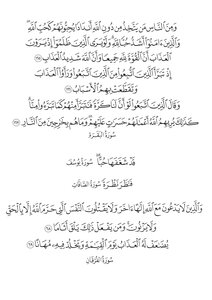 وَمِنَ النَّاسِ مَن يَتَّخِذُ مِن دُونِ اللَّهِ أَندَادًا يُحِبُّونَهُمْ كَحُبِّ اللَّهِ
وَالَّذِينَ ءَامَنُوا أَشَدُّ حُبًّا لِّلَّهِ وَلَوْ يَرَى الَّذِينَ ظَلَمُوا إِذْ يَرَوْنَ
الْعَذَابَ أَنَّ الْقُوَّةَ لِلَّهِ جَمِيعًا وَأَنَّ اللَّهَ شَدِيدُ الْعَذَابِ ١٦٥
إِذْ تَبَرَّأَ الَّذِينَ اتُّبِعُوا مِنَ الَّذِينَ اتَّبَعُوا وَرَأَوُا الْعَذَابَ
وَتَقَطَّعَتْ بِهِمُ الْأَسْبَابُ ١٦٦
وَقَالَ الَّذِينَ اتَّبَعُوا لَوْ أَنَّ لَنَا كَرَّةً فَنَتَبَرَّأَ مِنْهُمْ كَمَا تَبَرَّءُوا مِنَّا
كَذَٰلِكَ يُرِيهِمُ اللَّهُ أَعْمَالَهُمْ حَسَرَاتٍ عَلَيْهِمْ وَمَا هُم بِخَارِجِينَ مِنَ النَّارِ ١٦٧
سورة البقرة
قَدْ شَغَفَهَا حُبًّا سورة يوسف
فَنَظَرَ نَظْرَةً سورة الصافات
وَالَّذِينَ لَا يَدْعُونَ مَعَ اللَّهِ إِلَٰهًا ءَاخَرَ وَلَا يَقْتُلُونَ النَّفْسَ الَّتِي حَرَّمَ اللَّهُ إِلَّا بِالْحَقِّ
وَلَا يَزْنُونَ وَمَن يَفْعَلْ ذَٰلِكَ يَلْقَ أَثَامًا ٦٨
يُضَاعَفْ لَهُ الْعَذَابُ يَوْمَ الْقِيَامَةِ وَيَخْلُدْ فِيهِ مُهَانًا ٦٩
سورة الفرقان